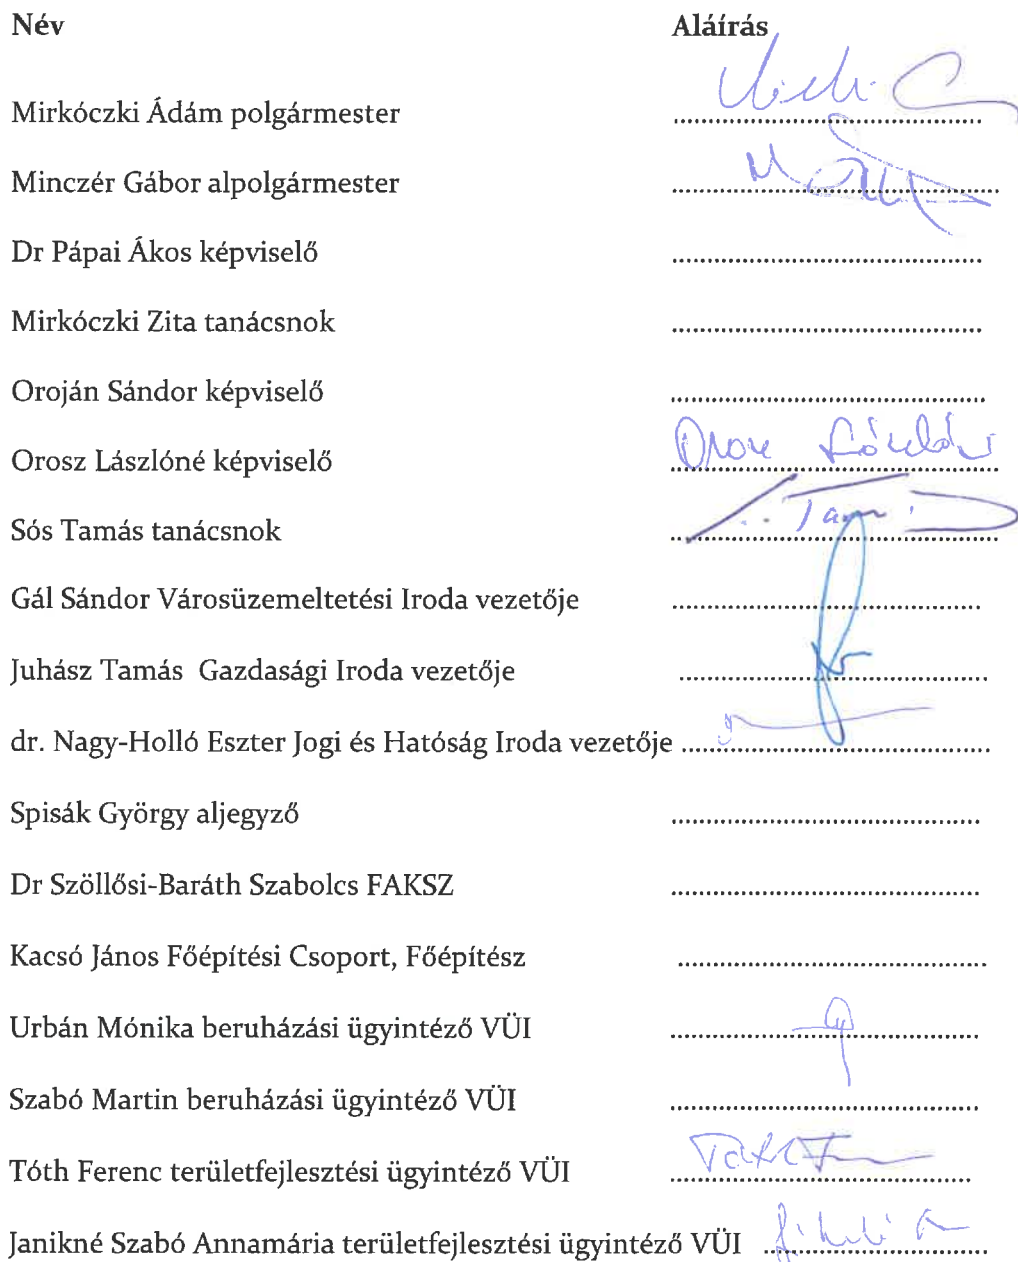 Név Aláírás
Mirkóczki Ádám polgármester
Minczér Gábor alpolgármester
Dr Pápai Ákos képviselő
Mirkóczki Zita tanácsnok
Oroján Sándor képviselő
Orosz Lászlóné képviselő
Sós Tamás tanácsnok
Gál Sándor Városüzemeltetési Iroda vezetője
Juhász Tamás Gazdasági Iroda vezetője
dr. Nagy-Holló Eszter Jogi és Hatóság Iroda vezetője
Spisák György aljegyző
Dr Szöllősi-Baráth Szabolcs FAKSZ
Kacsó János Főépítési Csoport, Főépítész
Urbán Mónika beruházási ügyintéző VÜI
Szabó Martin beruházási ügyintéző VÜI
Tóth Ferenc területfejlesztési ügyintéző VÜI
Janikné Szabó Annamária területfejlesztési ügyintéző VÜI